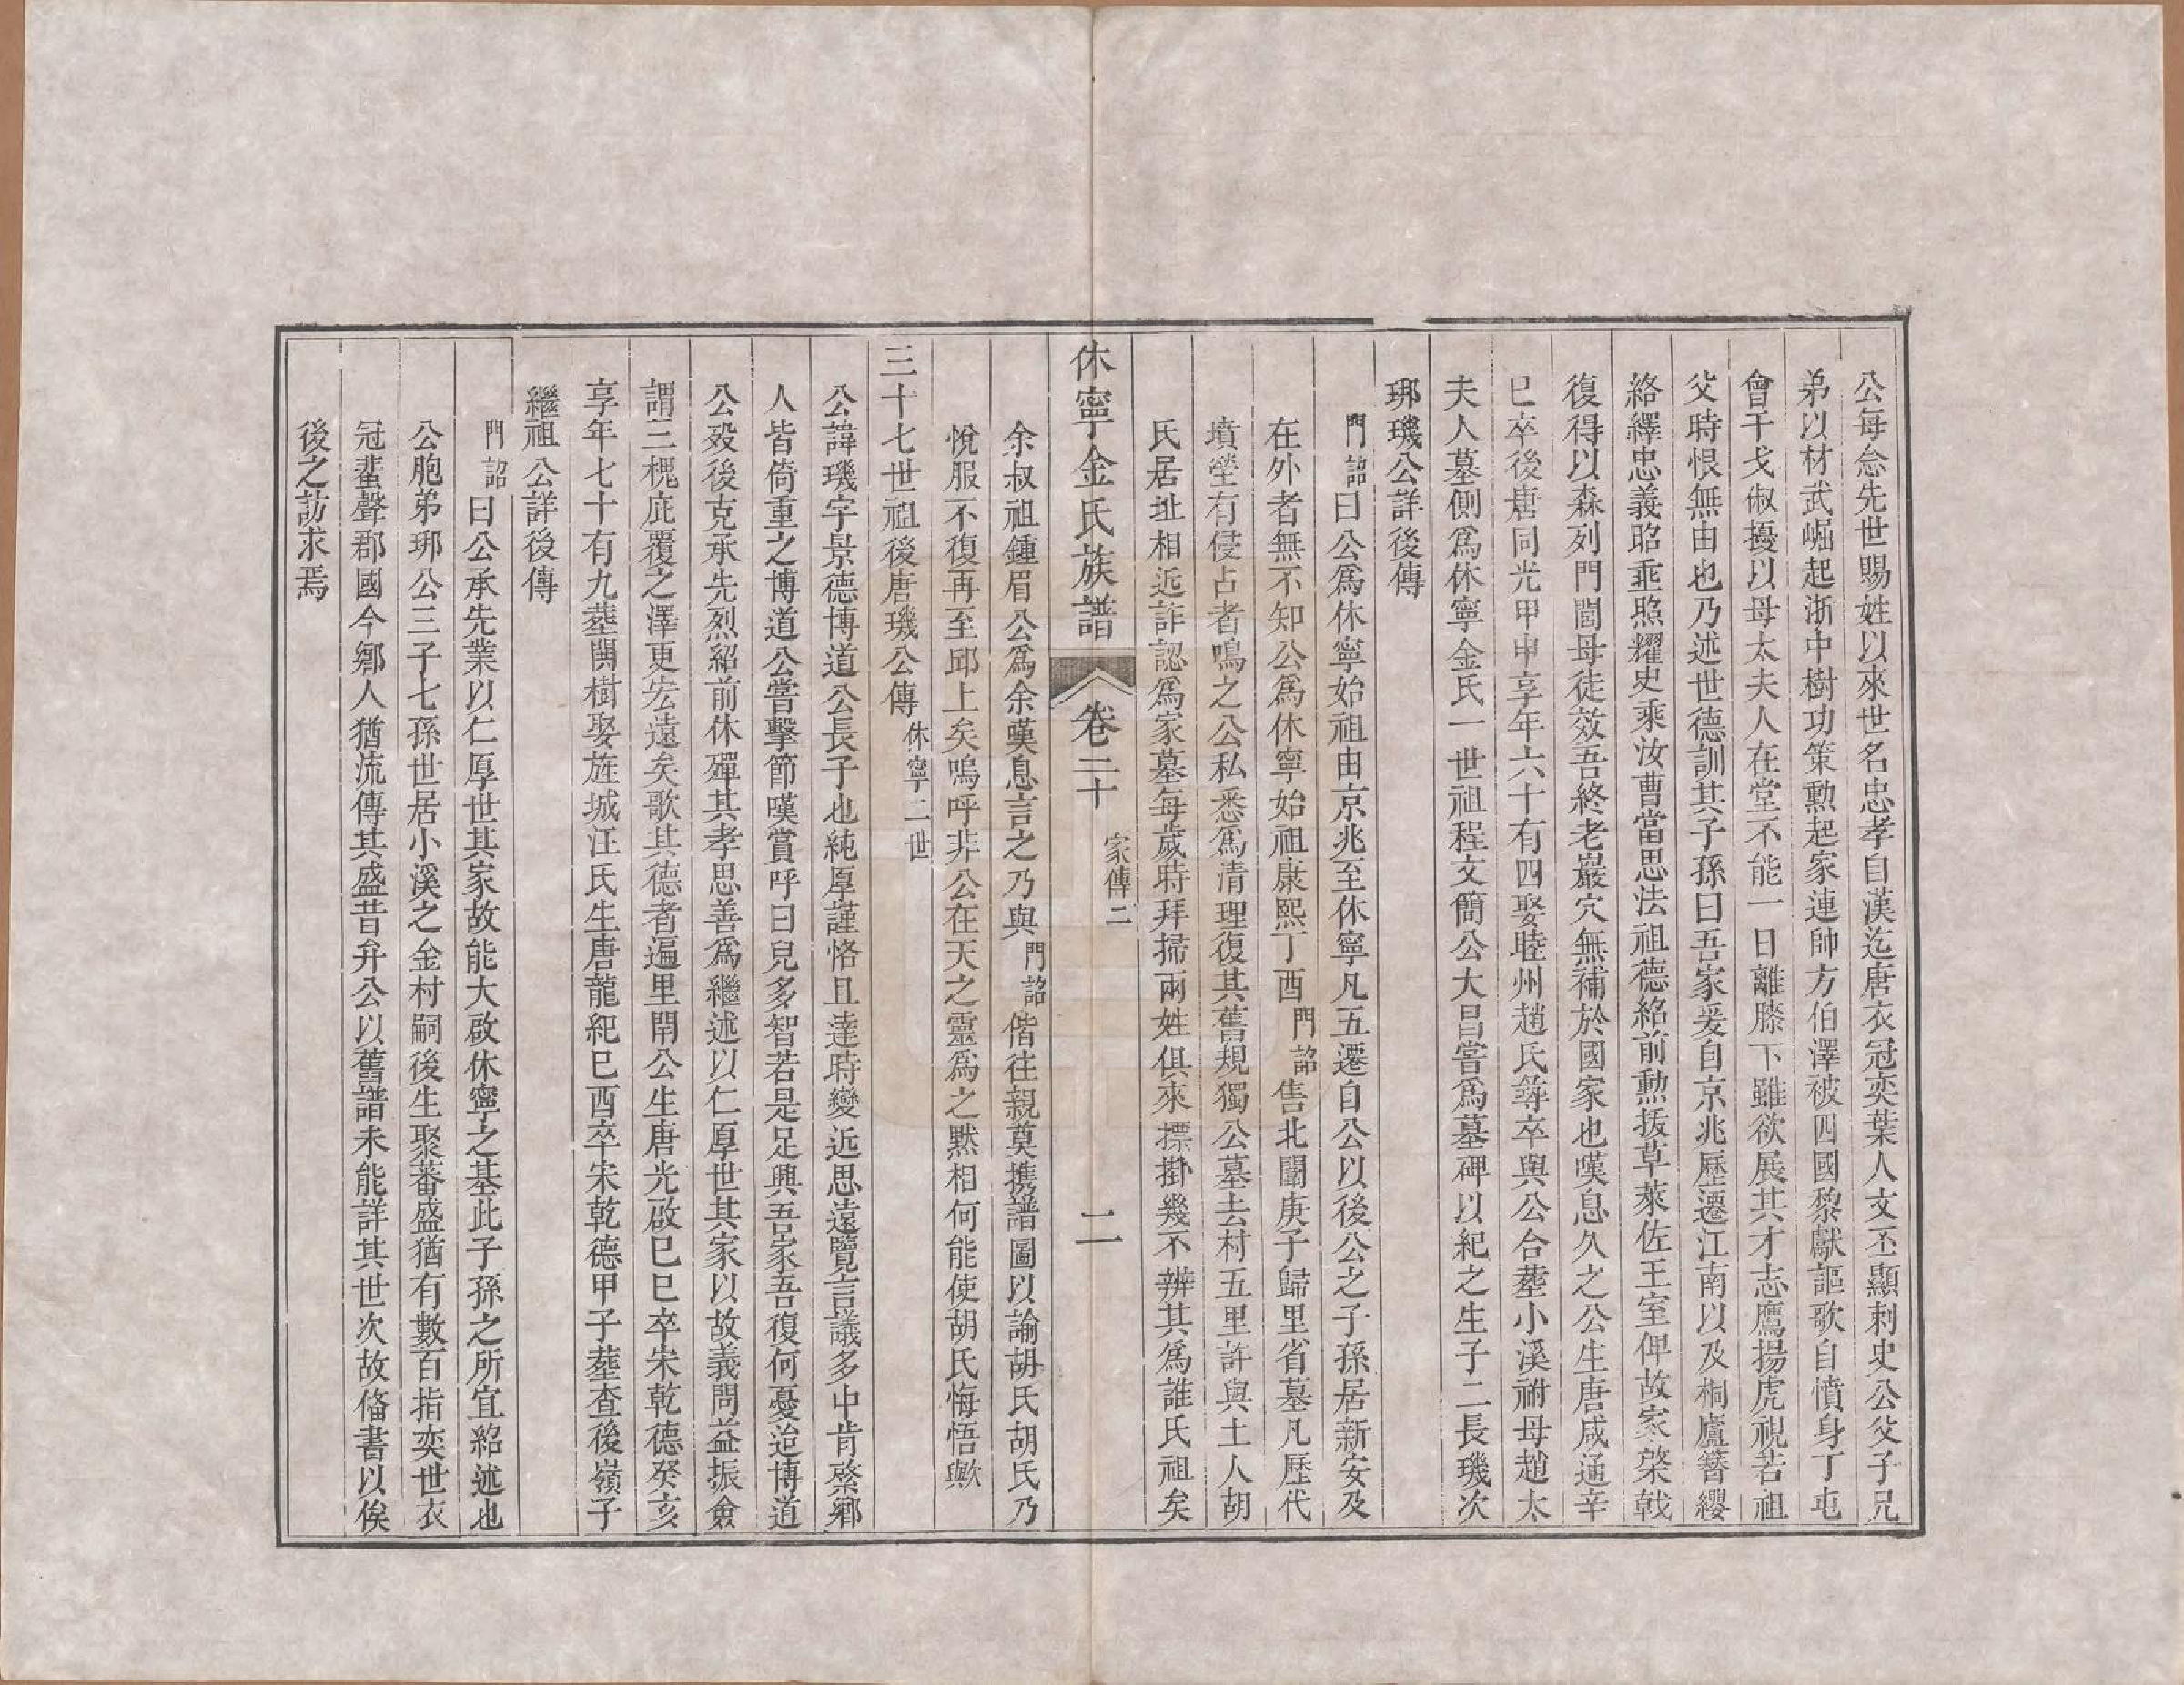 公每念先世賜姓以來世名忠孝自漢迄唐衣冠奕葉人文丕顯刺史公父子兄
弟以材武崛起浙中樹功策勲起家連帥方伯澤被四國黎獻謳歌自憤身丁屯
會干戈俶擾以母太夫人在堂不能一日離膝下雖欲展其才志鷹揚虎視若祖
父時恨無由也乃述世德訓其子孫曰吾家爰自京兆歷遷江南以及桐廬簪纓
絡繹忠義昭垂照耀史乘汝曹當思法祖德紹前勲拔草萊佐王室俾故家棨戟
復得以森列門閭毋徒效吾終老巖穴無補於國家也嘆息久之公生唐咸通辛
巳卒後唐同光甲申享年六十有四娶睦州趙氏䓁卒與公合塟小溪祔母趙太
夫人墓側爲休寧金氏一世祖程文簡公大昌嘗爲墓碑以紀之生子二長璣次
琊璣公詳後傳
門詔曰公爲休寧始祖由京兆至休寧凡五遷自公以後公之子孫居新安及
在外者無不知公爲休寧始祖康熙丁酉門詔售北闈庚子歸里省墓凡歷代
墳塋有侵占者鳴之公私悉爲清理復其舊規獨公墓去村五里許與土人胡
氏居址相近詐認爲家墓每歲時拜掃兩姓俱來摽掛幾不辨其爲誰氏祖矣
休寧金氏族譜 卷二十 家傳二 二
余叔祖鍾眉公爲余嘆息言之乃與門詔偕往親奠携譜圖以諭胡氏胡氏乃
悅服不復再至邱上矣嗚呼非公在天之靈爲之黙相何能使胡氏悔悟歟
三十七世祖後唐璣公傳 休寧二世
公諱璣字景德博道公長子也純厚謹恪且達時變近思遠覽言議多中肯綮鄉
人皆倚重之博道公嘗擊節嘆賞呼曰兒多智若是足興吾家吾復何憂迨博道
公歿後克承先烈紹前休殫其孝思善爲繼述以仁厚世其家以故義問益振僉
謂三槐庇覆之澤更宏遠矣歌其德者遍里閈公生唐光啟巳巳卒宋乾德癸亥
享年七十有九塟閧樹娶旌城汪氏生唐龍紀巳酉卒宋乾德甲子塟查後嶺子
繼祖公詳後傳
門詔曰公承先業以仁厚世其家故能大啟休寧之基此子孫之所宜紹述也
公胞弟琊公三子七孫世居小溪之金村嗣後生聚蕃盛猶有數百指奕世衣
冠蜚聲郡國今鄉人猶流傳其盛昔弁公以舊譜未能詳其世次故偹書以俟
後之訪求焉